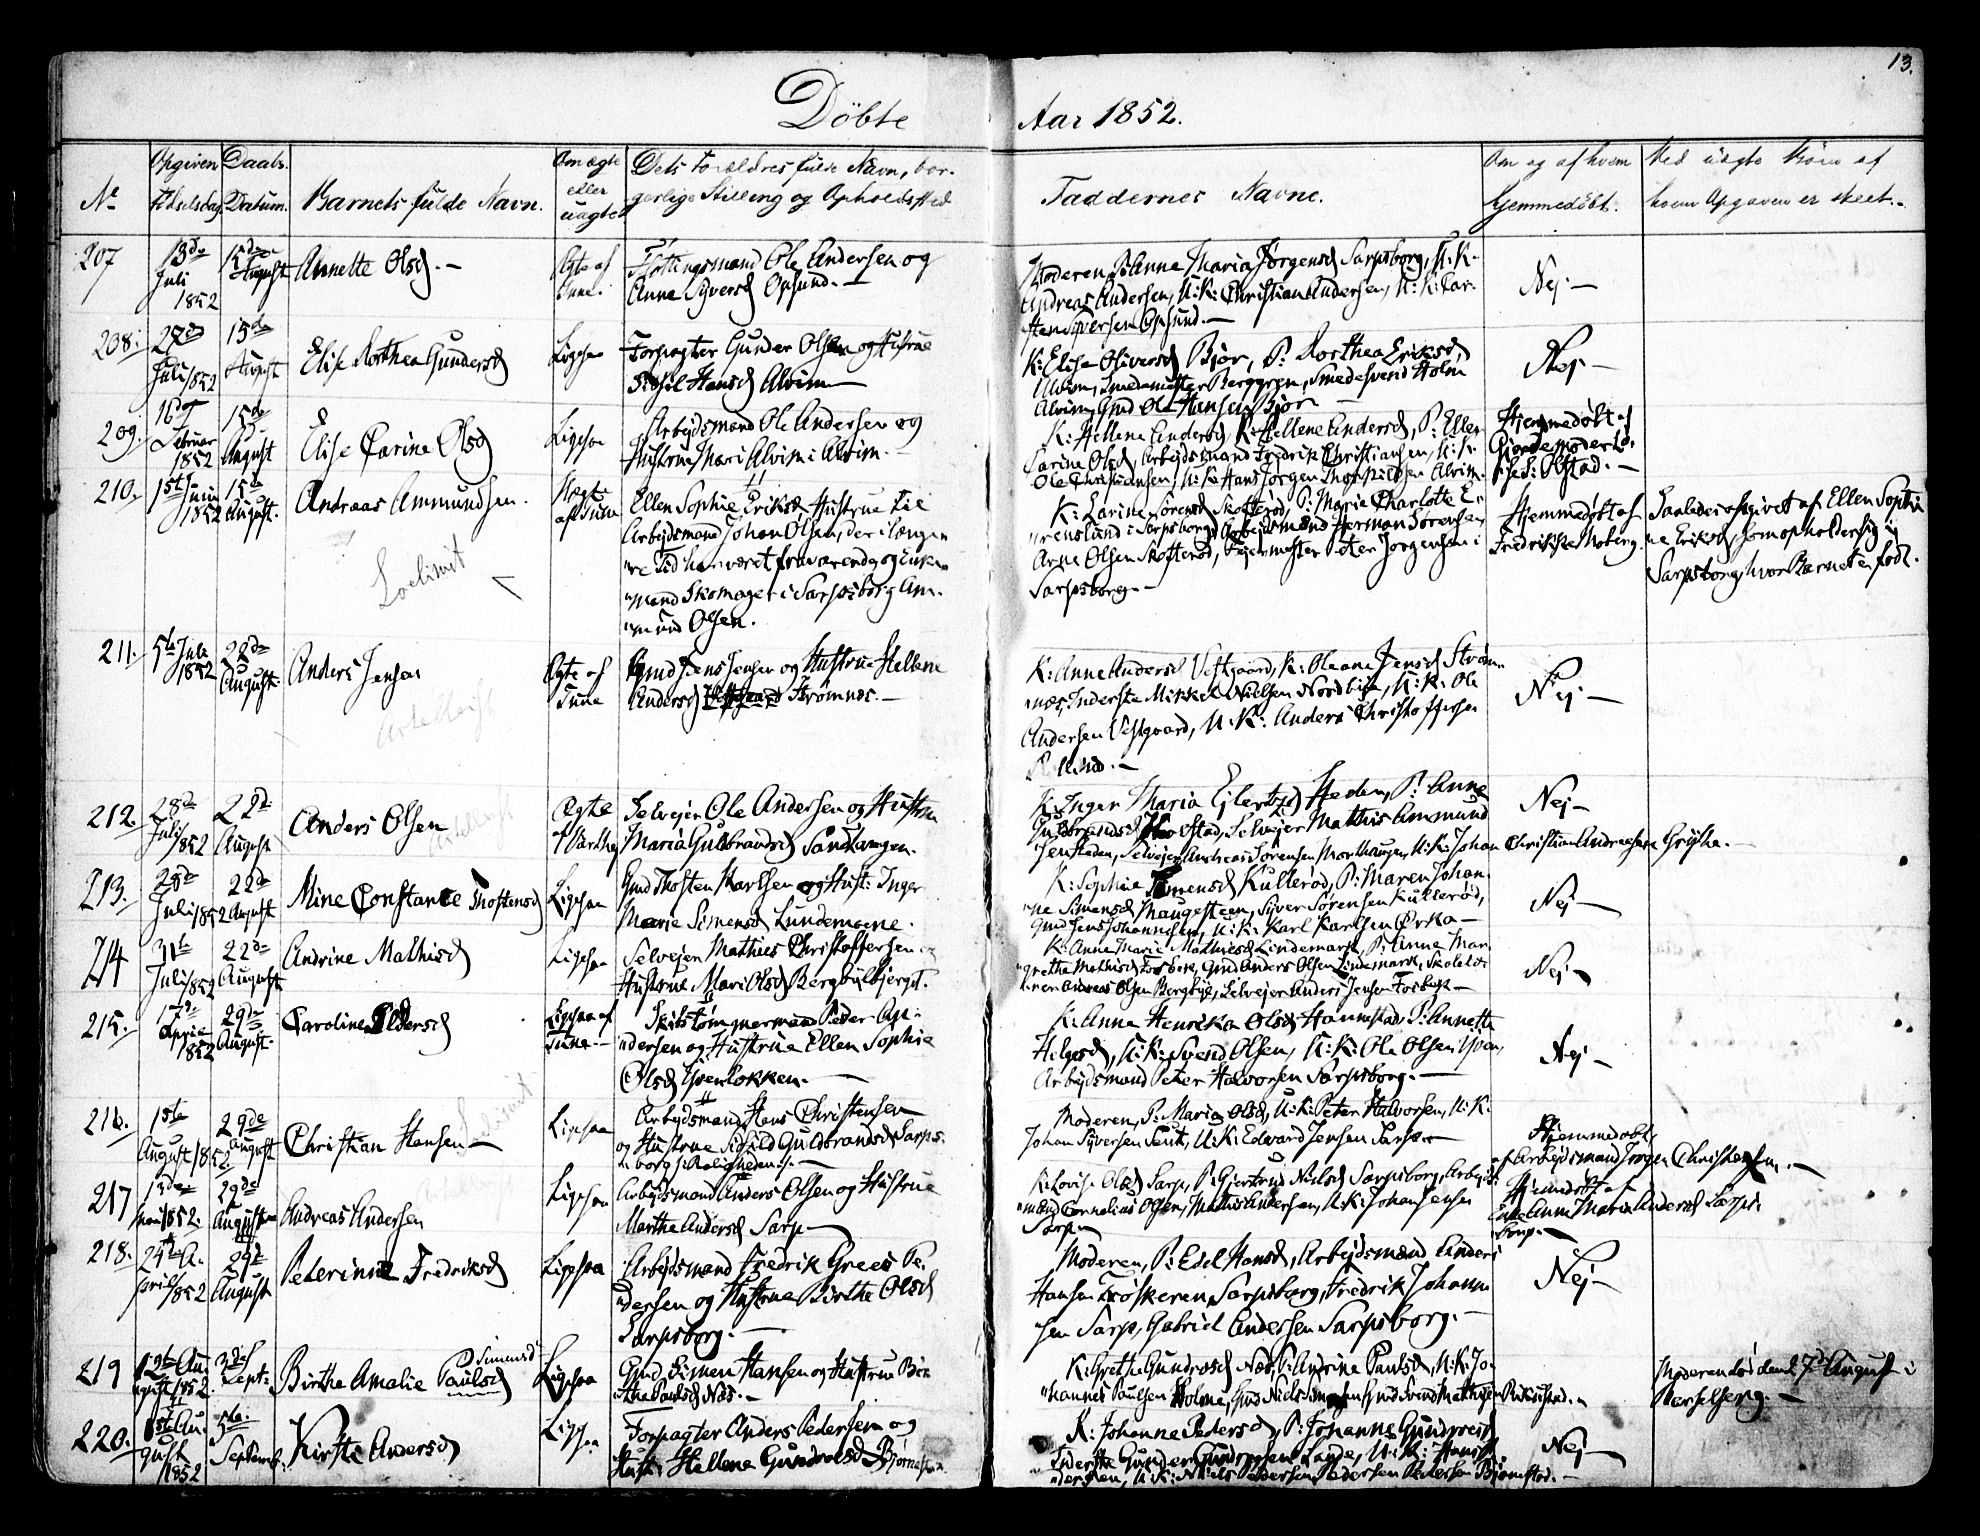 13.
Döbte Aar 1852.
No
Opgiven Födselsdag
Daabs Datum.
Barnets fulde Navn.
Om ægte eller uægte
Dets Forældres fulde Navn, borgerlige Stilling og Opholdssted
Faddernes Navne.
Om og af hvem hjemmedöbt.
Ved uægte Börn af hvem Opgaven er skeet.
207
13de Juli 1852
15de August
Annette Olsd. —
Ægte af Tune.
Flötningsmand Ole Andersen og
Anna Syversd Opsund. —
Moderen, P: Anne Maria Jörgensd Sarpsborg, U. K.
Andreas Andersen, U: K: Christian Andersen, U: K: Car-
sten Syversen Opsund. —
Nej —
208.
27de Juli 1852
15de August
Elise Dorthea Gundersd
Ligesaa
Forpagter Gunder Olsen og Hustrue
Sidsel Hansd Alvim —
K: Elise Oliversd Björ, P: Dorthea Eriksd,
Alvim, Smedemester Berggren, Smedesvend Holm
Alvim, Gmd Ole Hansen Björ —
Nej —
209.
16de Februar 1852
15de August
Elise Carine Olsd
Ligesaa
Arbejdsmand Ole Andersen og
Hustrue Mari Alvim i Alvim. —
K: Hellene Andersd, K: Hellene Andersd, P: Ellen
Carine Olsd, Arbejdsmand Fredrik Christiansen, U: K:
Ole Christiansen, U: K: Hans Jörgen Alvim.
Hjemmedöbt af
210.
1ste Juni 1852
15de August.
Andreas Ammundsen.
Uægte af Tune
Ellen Sophie Eriksd, Hustrue til
Arbejdsmand Johan Olsen, der i længe-
"re Tid har været fraværende og Enke-
"mand Skomager i Sarpsborg Am-
"mund Olsen.
K: Karine Sörensd Skotteröd, P: Marie Charlotte
i Sarpsborg, Arbejdsmand Herman Sörensen,
Arne Olsen Skotteröd, Fejermester Peter Jorgensen i
Sarpsborg —
Hjemmedöbt af
Fredrikke Moberg.
Saaledes opgivet af Ellen Sophi-
ne Eriksd, som opholder sig i
Sarpsborg, hvor Barnet er född.
211.
5te Juli 1852
22de August
Anders Jensen
Ægte af Tune
Gmd Jens Jensen og Hustrue Hellene
Andersd Strömnes. —
K: Anne Andersd Vestgaard, K: Oleane Jensd Ström-
"næs, Inderste Mikkel Nielsen Nordbye, U: K: Ole
Andersen Vestgaard, U. K: Anders Christoffersen
Nej. —
212.
28de Juli 1852
22de August
Anders Olsen
Ægte af Varteig
Selvejer Ole Andersen og Hustru
Maria Gulbrandsd Sandtangen.
K: Inger Maria Ejlertsd Heden, P: Anne
Gulbrandsd, Selvejer Mathis Ammund-
sen Heden, Selvejer Andreas Sörensen Morthaugen, U: K: Johan Christian Andreassen —
Nej —
213.
28de Juli 1852
22de August
Mine Constance Thostensd
Ligesaa
Gmd Thosten Karlsen og Hust: Inger
Marie Simensd Lundemoene.
K: Sophie Simensd Kulleröd, P: Maren Johan-
"ne Simensd Haugesteen, Syver Sörensen Kulleröd,
Gmd Jens Johannesen, U: K: Karl Karlsen —
Nej —
214
31te Juli 1852
22de August
Andrine Mathisd
Ligesaa
Selvejer Mathies Christoffersen og
Hustrue Mari Olsd Bergbyebjerget.
K: Anne Marie Mathiesd Lindemark, P: Anne Mar-
"grethe Mathisd Fosbye, Gmd Anders Olsen Lindemark, Skolelæ-
"rer Andreas Olsen Bergbye, Selvejer Anders Jensen Fosbye. —
Nej —
215.
17de April 1852
29de August.
Caroline Pedersd
Ligesaa af Tune. —
Skibstömmermand Peder An-
"dersen og Hustrue Ellen Sophie
Olsd Yvenlökken. —
K: Anna Henrika Olsd Hannestad, P: Annette
Helgesd, U: K: Svend Olsen, U: K: Ole Olsen Yven,
Arbejdsmand Peter Halvorsen Sarpsborg. —
Nej —
216.
1ste August 1852.
29de August
Christian Hansen —
Ligesaa
Arbejdsmand Hans Christensen
og Hustrue Guldbrandsd Sarps-
"borg i Roligheden. —
Moderen, P: Maria Olsd, U: K: Peter Halvorsen, U: K.
Johan Syversen, U: K: Edward Jensen Sarp —
Hjemmedöbt
af Arbejdsmand Jörgen Christensen. —
217
13de Mai 1852.
29de August
Andreas Andersen
Ligesaa
Arbejdsmand Anders Olsen og Hustrue
Marthe Andersd Sarp —
K: Lovise Olsd Sarp, P: Gjertrud Nielsd Sarpsborg, Arbejds-
"mænd Cornelius Olsen, Mathis Andersen, U: K: Johan Jensen
Sarp —
Hjemmedöbt af
Enke Anne Maria Andersd Sarps-
borg. —
218.
24de April 1852
29de August
Pederinne Fredriksd
Ligesaa
Arbejdsmand Fredrik Grees Pe-
"dersen og Hustrue Birthe Olsd
Sarpsborg. —
Moderen, P: Edel Hansd, Arbejdsmænd Anders
Hansen Sarpsborg, Fredrik Johann-
sen Sarp, Gabriel Andersen Sarpsborg. —
Nej —
219
12te August 1852.
3die Sept:
Birthe Amalie Paulsd
Simensd
Ligesaa
Gmd Simen Hansen og Hustrue Bir-
the Paulsd Næs. —
K: Grethe Gundrosd Næs, P: Andrine Paulsd, U: K: Jo-
"hannes Paulsen Holme, Gmd Niels Simensen, Gmd Svend Mathisen —
Moderen död den 7de August i
220.
8de August 1852
5te Septemb:
Kirsti Andersd
Ligesaa
Forpagter Anders Pedersen og
Hust: Hellene Gundrosd Björnestad.
K: Johanne Pedersd, P: Johanne Gundrosd
Inderste Gunder Gundersen Lande, U: K: Hans
U: K: Niels Pedersen, Pedersen Björnestad. —
Nej —